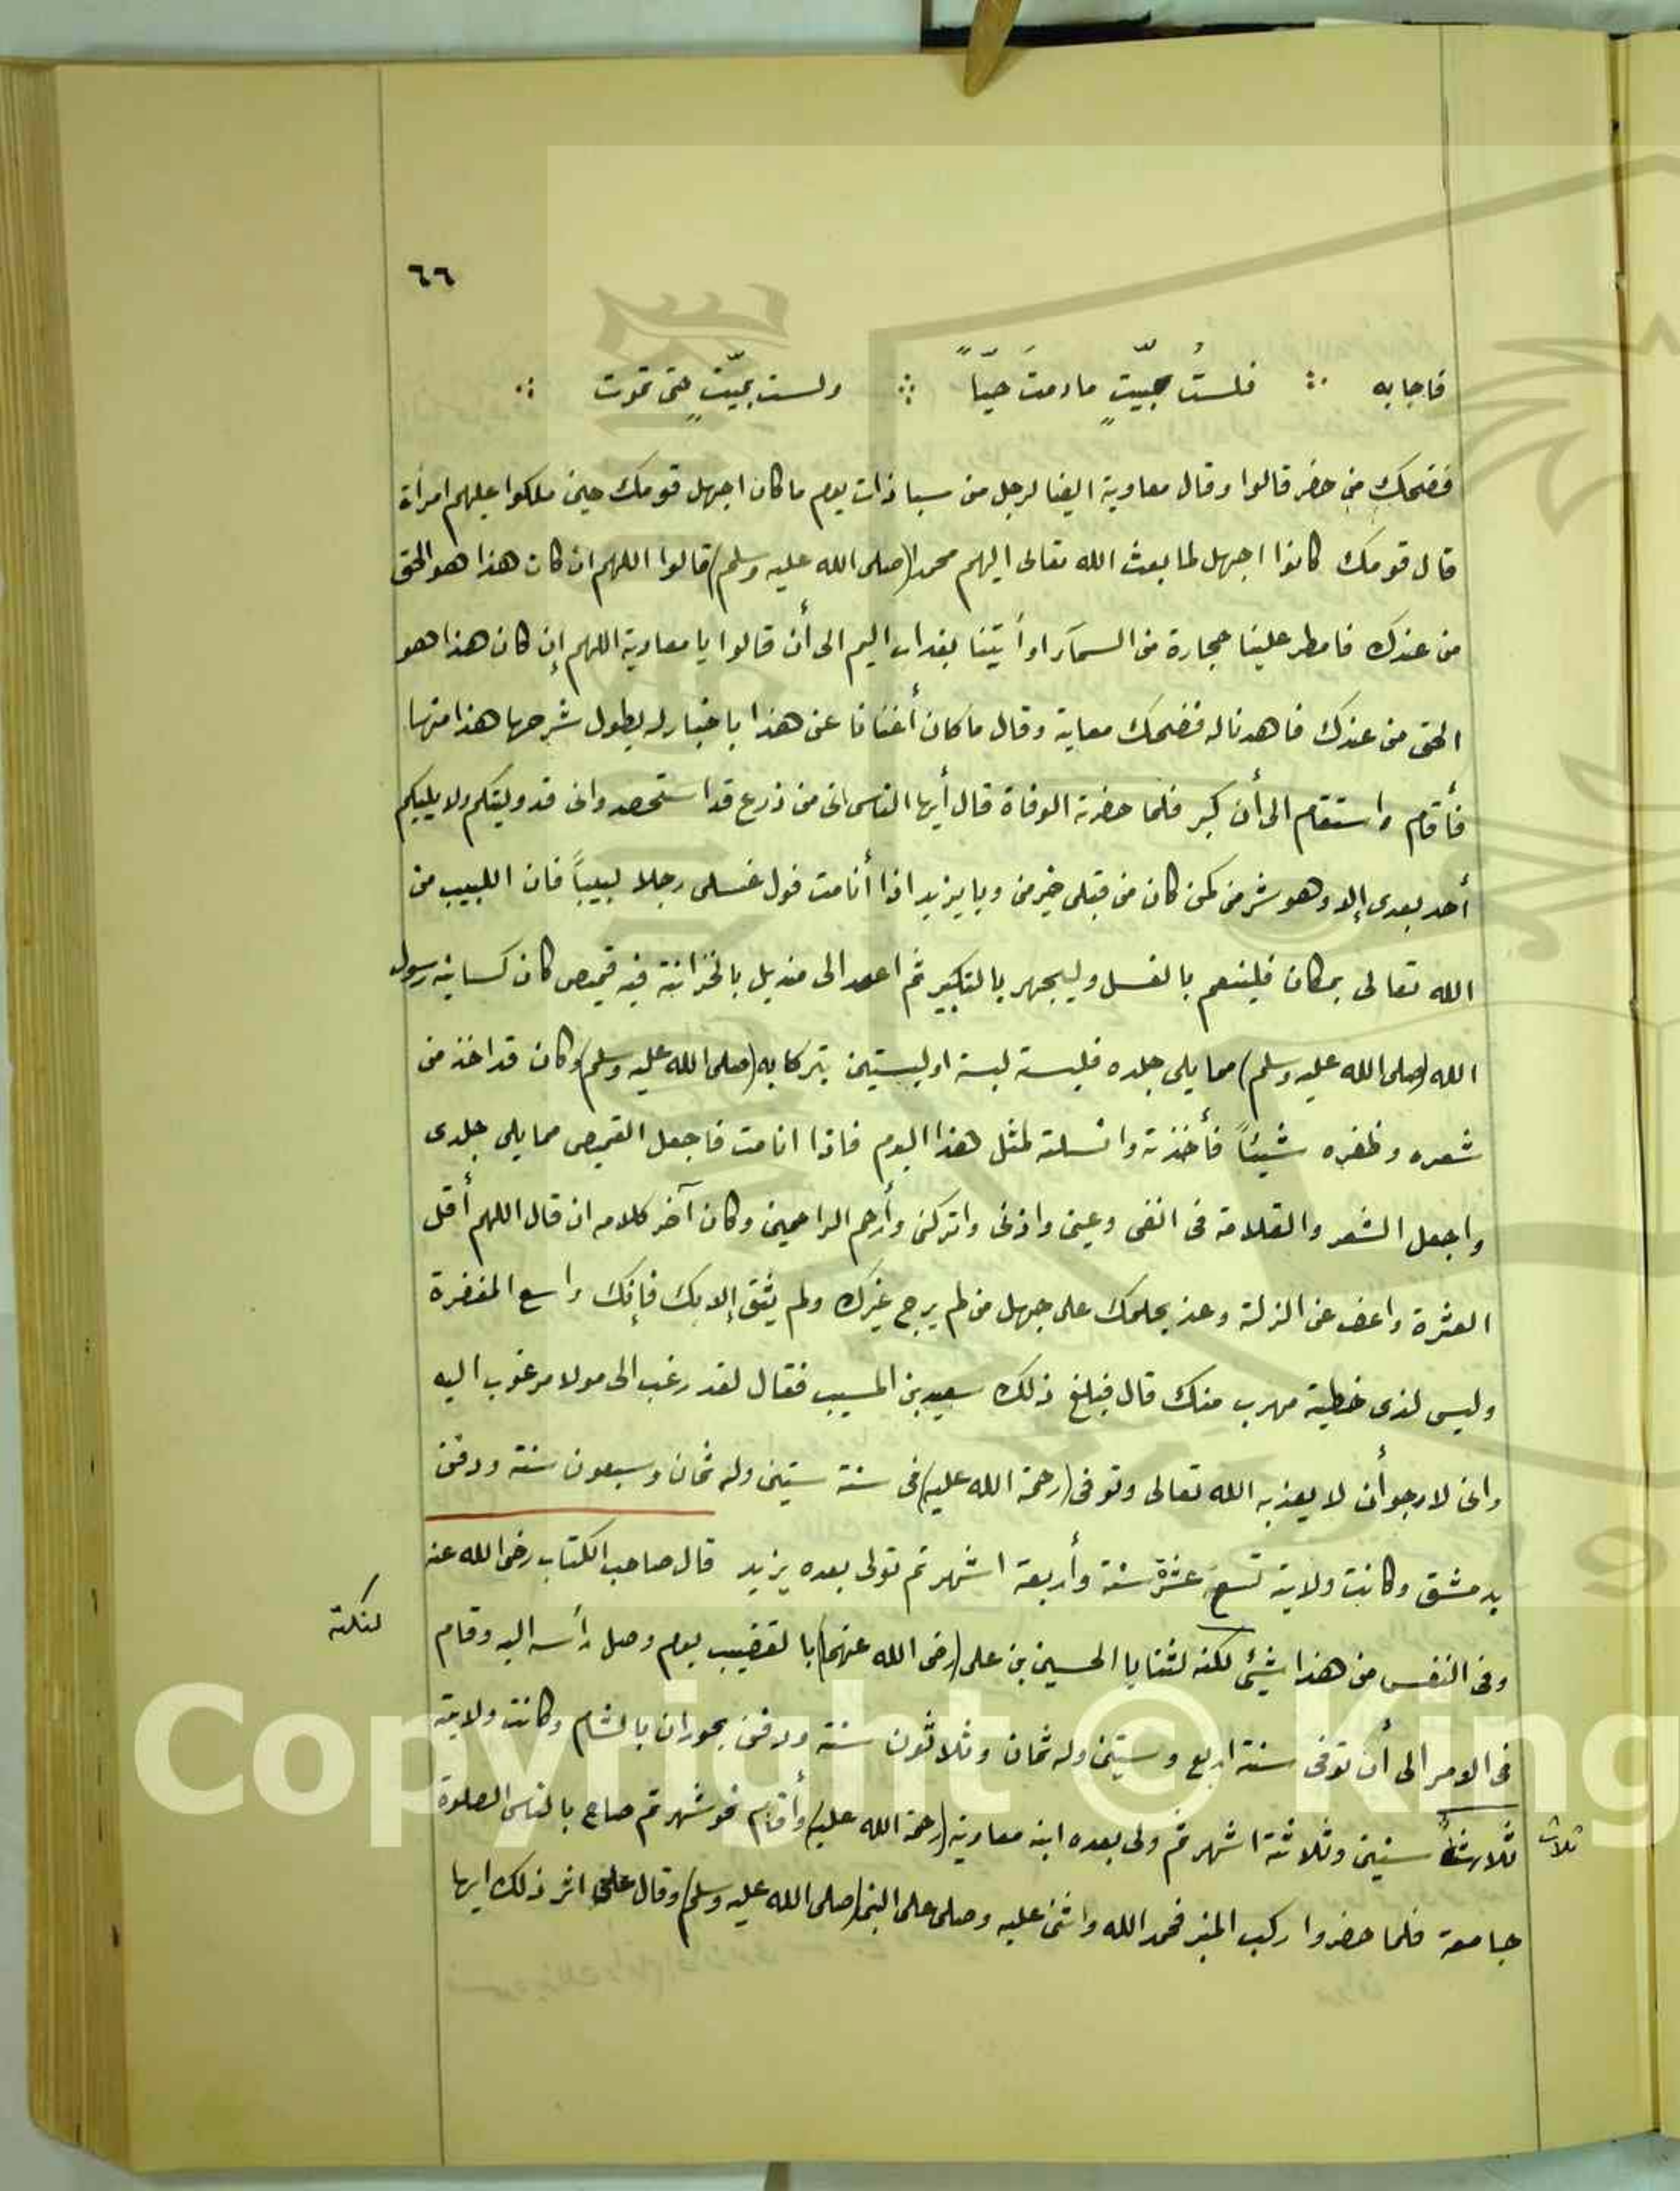 ٦٦
فاجابه ∴ فلستُ بحيّتٍ مادمتَ حيّاً ∴ ولست بميّتٍ حتى تموت ∴
فضحك من حضر قالوا وقال معاوية ايضا لرجل من سبا ذات يوم ما كان اجهل قومك حين ملكوا عليهم امرأة
قال قومك كانوا اجهل لما بعث الله تعالى اليهم محمدا (صلى الله عليه وسلم) قالوا اللهم ان كان هذا هو الحق
من عندك فامطر علينا حجارة من السمآء او أيتنا بعذاب اليم الى أن قالوا يا معاوية اللهم إن كان هذا هو
الحق من عندك فاهدنا له فضحك معاية وقال ما كان أغنانا عن هذا باخبار له يطول شرحها هذا منها
فأقام واستقام الى أن كبر فلما حضرته الوفاة قال أيها الناس انى من زرع قد استحصد وانى قد وليتكم ولا يليكم
أحد بعدى إلا وهو شر منى كمن كان من قبلى خير منى ويا يزيد اذا أنا مت فول غسلى رجلا لبيباً فان اللبيب من
الله تعالى بمكان فلينعم بالغسل وليجهر بالتكبير ثم اعمد الى منديل بالخزانة فيه قميص كان كسانيه رسول
الله (صلى الله عليه وسلم) مما يلى جلده فلبسته لبسة او لبستين تبركا به (صلى الله عليه وسلم) وكان قد اخذ من
شعره وظفره شيئاً فأخذته وانسلته لمثل هذا اليوم فاذا انا مت فاجعل القميص مما يلى جلدى
واجعل الشعر والقلامة فى انفى وعينى واذنى واتركنى وأرحم الراحمين وكان آخر كلامه ان قال اللهم أقل
العثرة واعف عن الزلة وعد بحلمك على جهل من لم يرج غيرك ولم يثق إلا بك فإنك واسع المغفرة
وليس لذى خطية مهرب منك قال فبلغ ذلك سعيد بن المسيب فقال لقد رغب الى مولا مرغوب اليه
وانى لارجو أن لا يعذبه الله تعالى وتوفى (رحمة الله عليه) فى سنة ستين وله ثمان وسبعون سنة ودفن
بدمشق وكانت ولايته تسع عشرة سنة وأربعة اشهر ثم تولى بعده يزيد قال صاحب الكتاب رضى الله عنه
وفى النفس من هذا شيئ لكنه لثنايا الحسين بن على (رضى الله عنهما) بالقضيب يوم وصل رأسه اليه وقام
لنكته
فى الامر الى أن توفى سنة اربع وستين وله ثمان وثلاثون سنة ودفن بحوران بالشام وكانت ولايته
ثلاث سنين وثلاثة اشهر ثم ولى بعده ابنه معاوية (رحمة الله عليه) وأقام نحو شهر ثم صاح بالناس الصلوة
ثلاث
جامعة فلما حضروا ركب المنبر فحمد الله واثنى عليه وصلى على النبى (صلى الله عليه وسلم) وقال على اثر ذلك ايها
Copyright © King